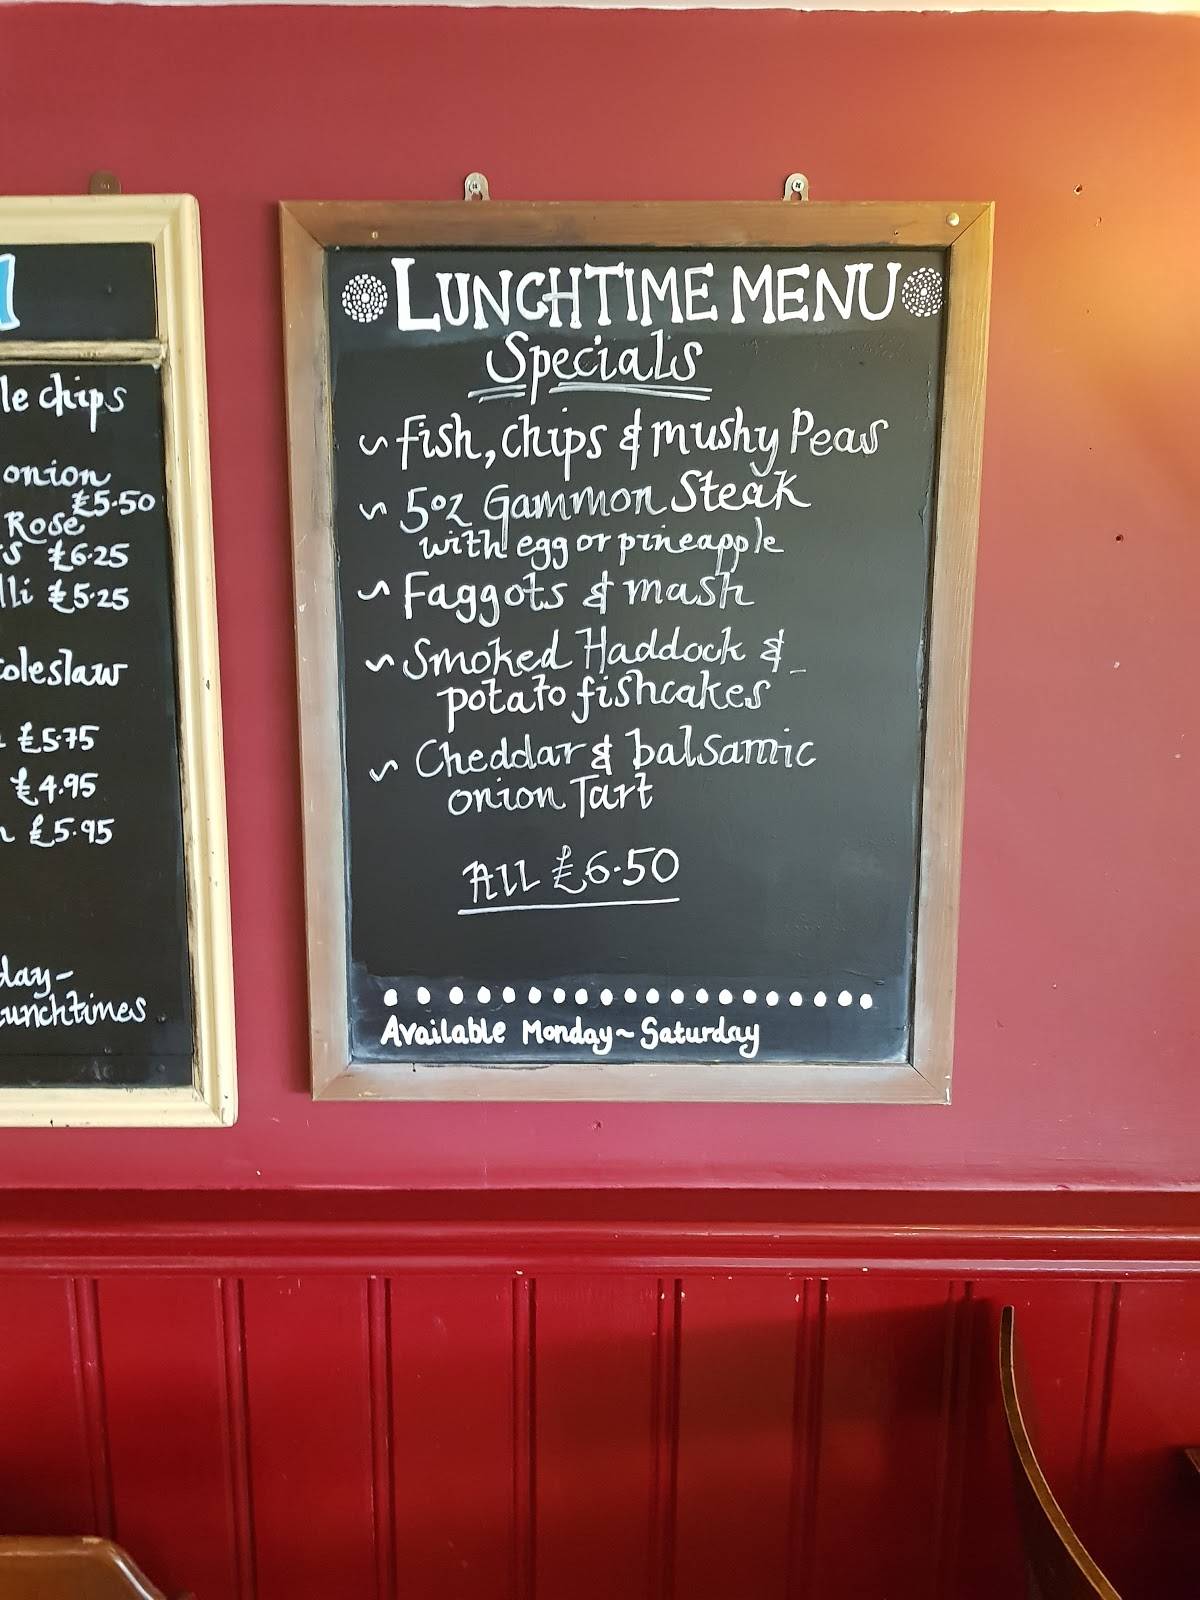 le chips
onion
£5.50
Rose
£6.25
£5.25
coleslaw
£5.75
£4.95
£5.95
day-
Lunchtimes
LUNCHTIME MENU
Specials
~ fish, chips & mushy Peas
~ 5oz Gammon Steak
with egg or pineapple
~ Faggots & mash
~ Smoked Haddock &
potato fishcakes
~ Cheddar & balsamic
onion Tart
All £6.50
Available Monday~Saturday